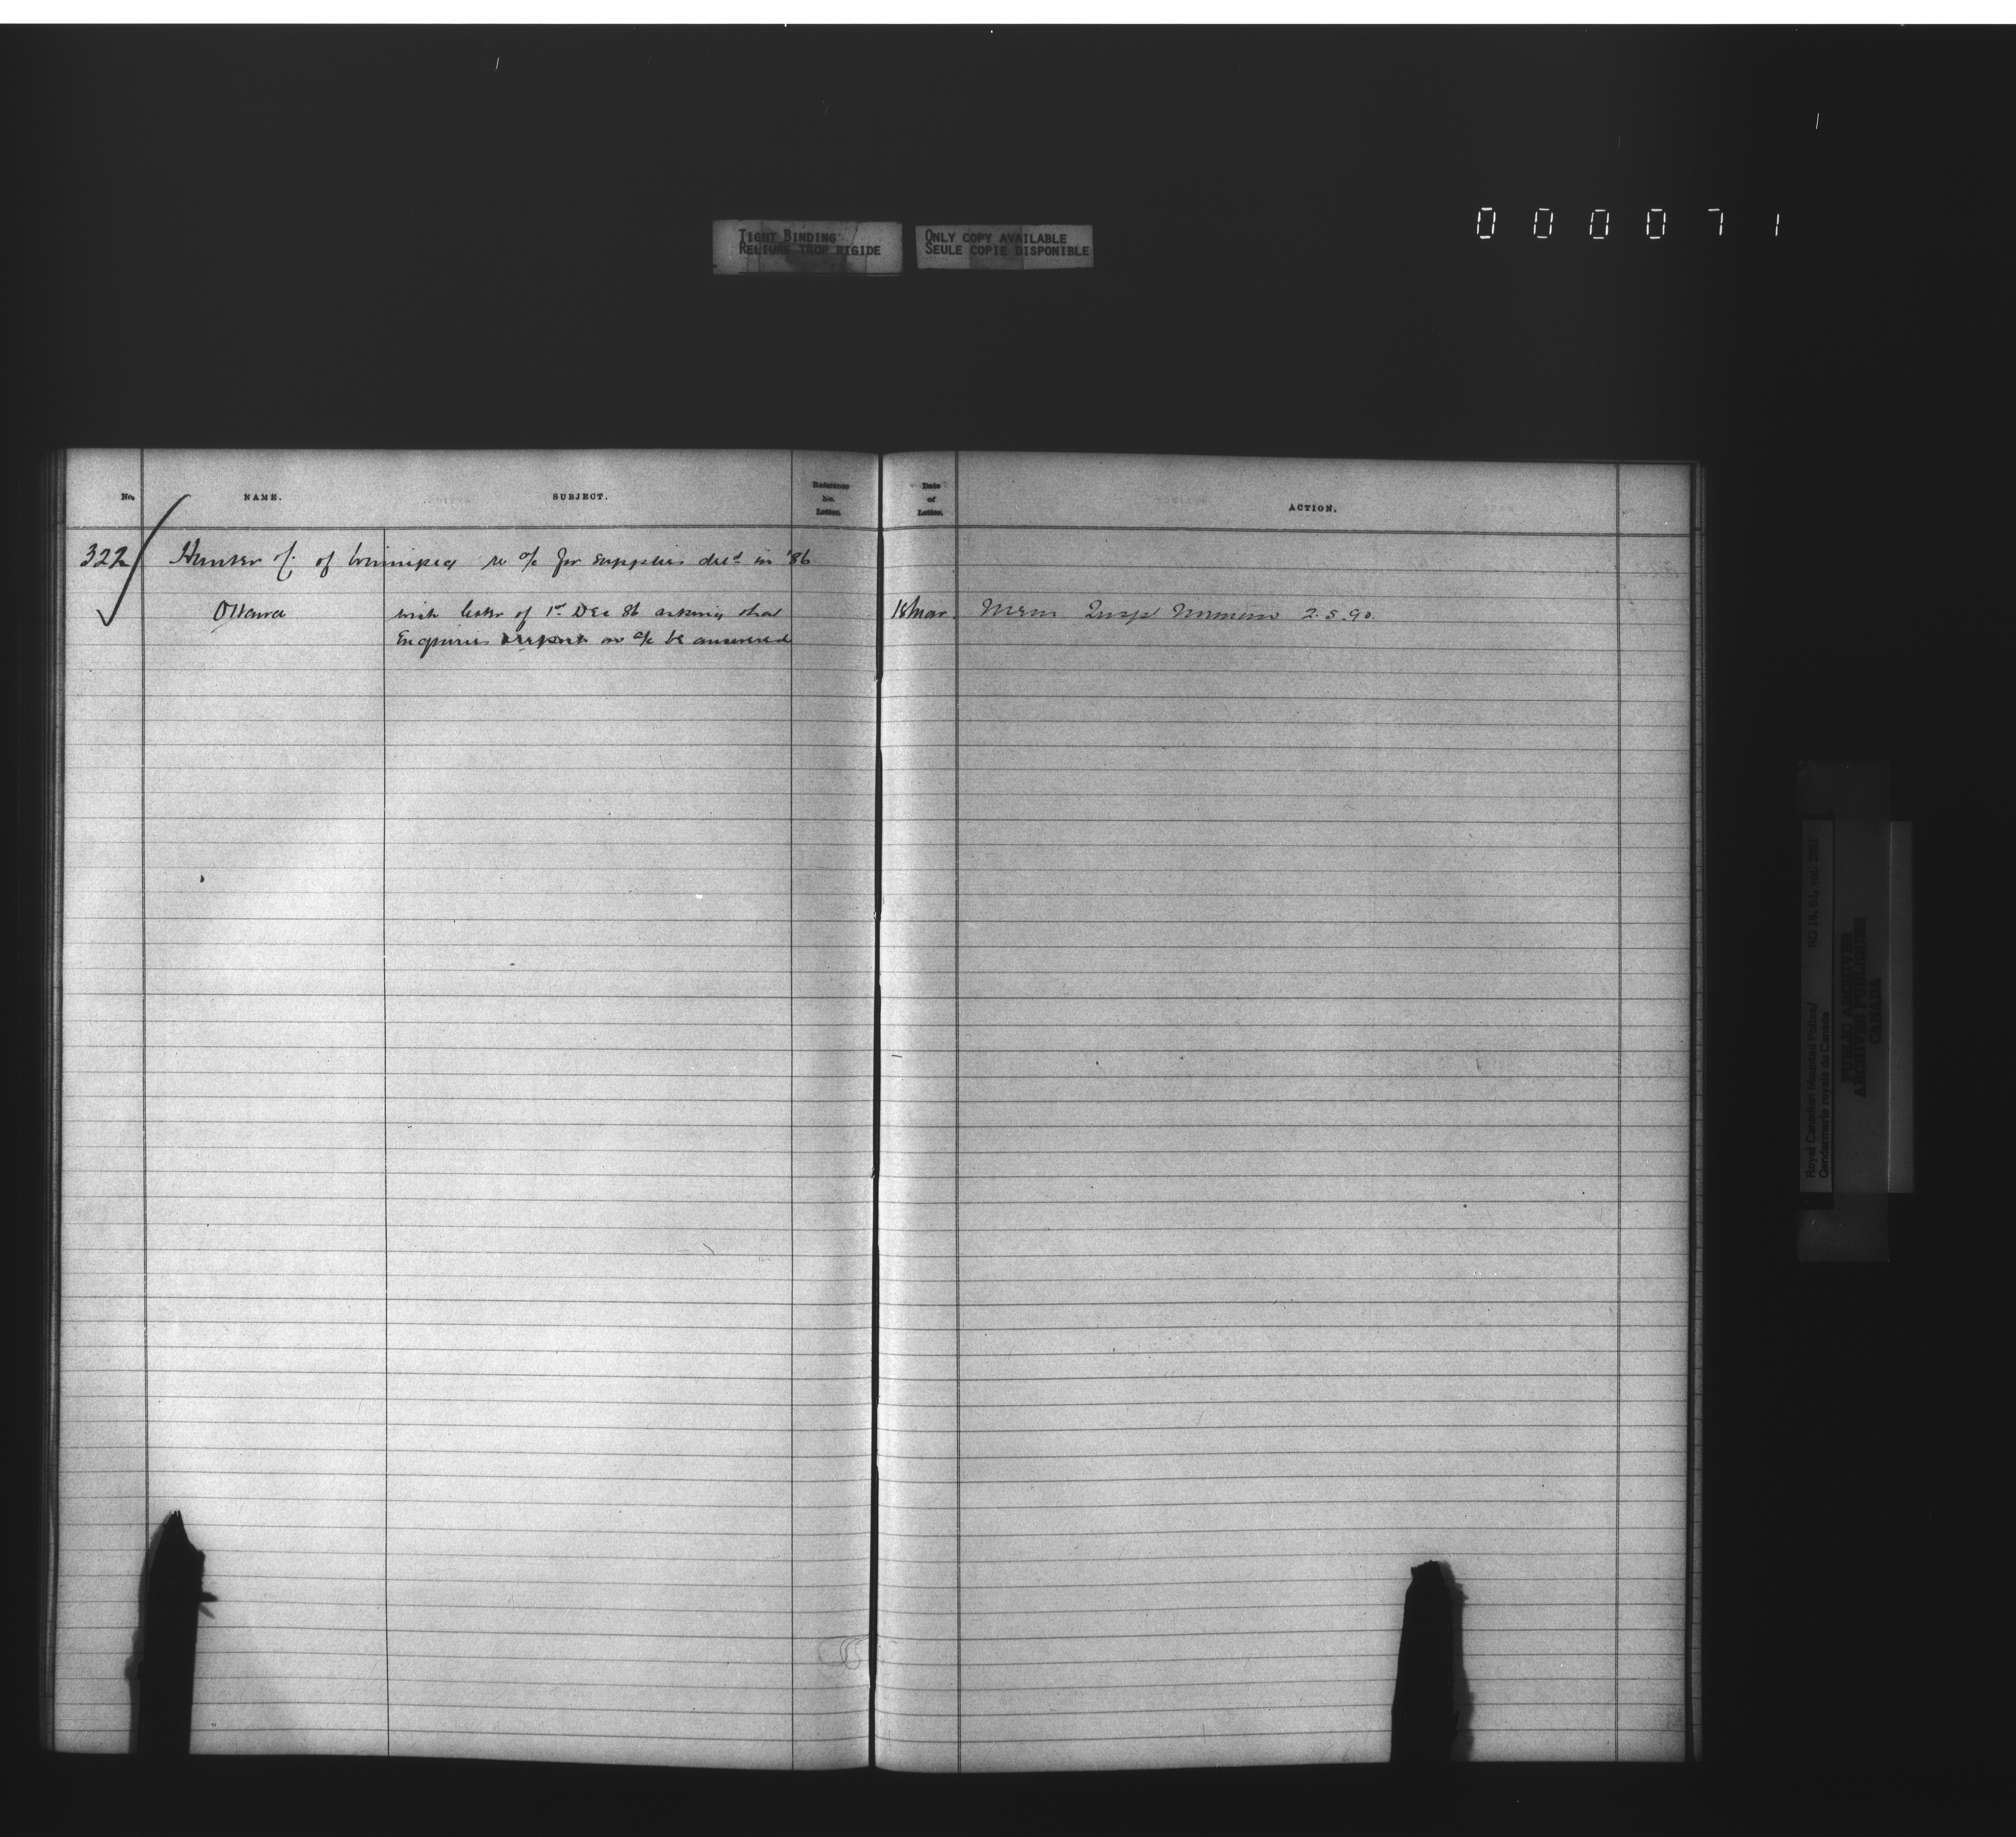 TIGHT BINDING
RELIURE TROP RIGIDE
ONLY COPY AVAILABLE
SEULE COPIE DISPONIBLE
000071
No. NAME. SUBJECT. Reference No. Letter. Date of Letter. ACTION.
322 Hunter of Winnipeg re a/c for supplies del'd in '86
Ottawa with letter of 1st Dec 86 asking that 18 Mar. Mem Insp 2.5.90.
Enquiries on a/c be answered
Royal Canadian Mounted Police/ RG 18, B1, vol. 2001
Gendarmerie royale du Canada
PUBLIC ARCHIVES
ARCHIVES PUBLIQUES
CANADA